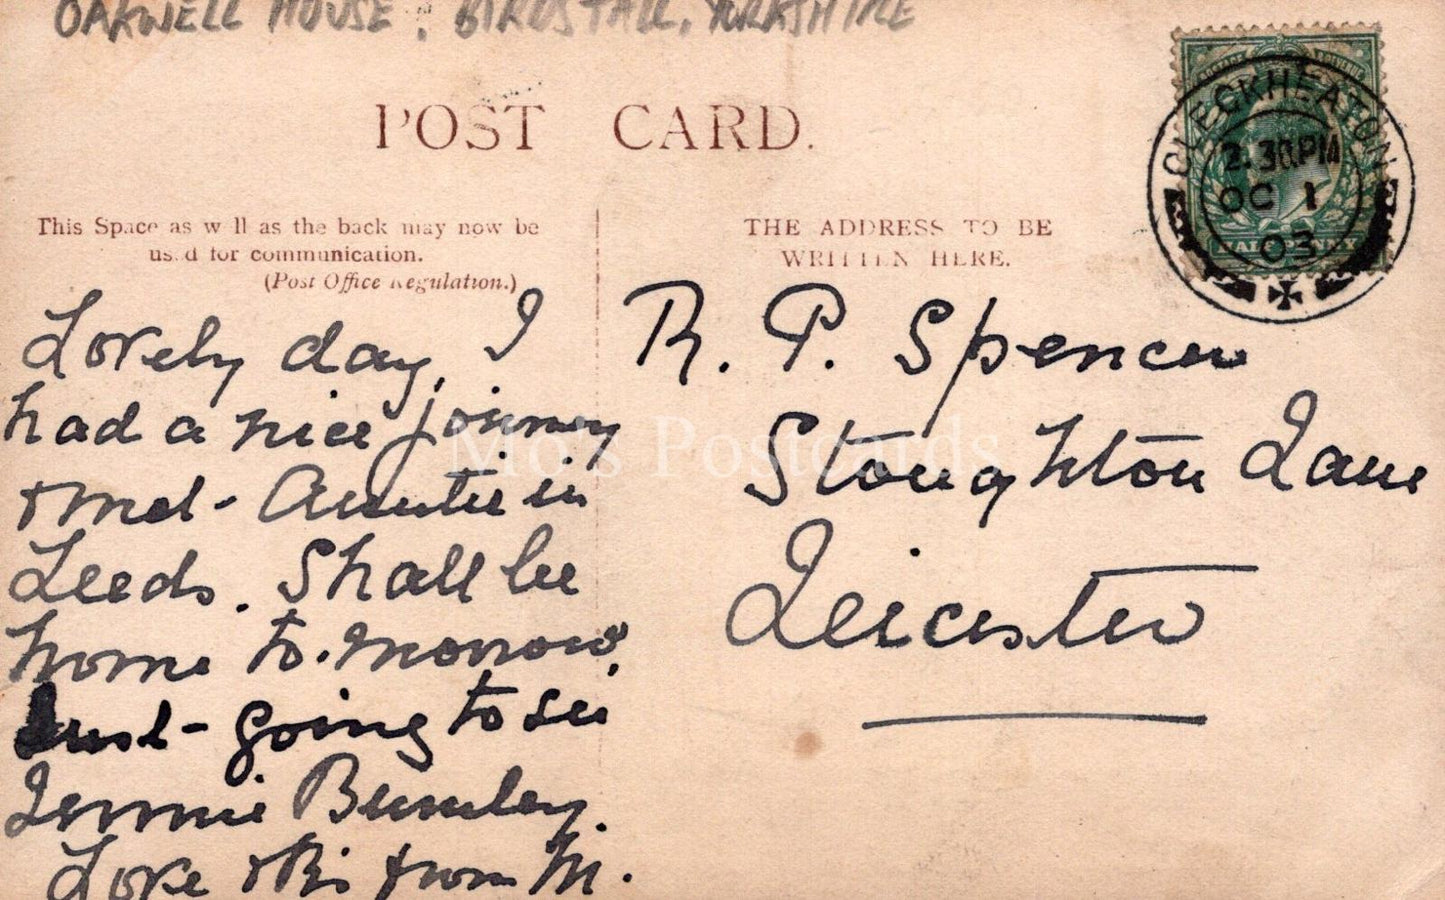 OAKWELL HOUSE, BIRDSTALL, YORKSHIRE
POST CARD.
This Space as well as the back may now be
used for communication.
(Post Office Regulation.)
THE ADDRESS TO BE
WRITTEN HERE.
CLECKHEATON
2.30PM
OC 1
03
POSTAGE REVENUE
HALFPENNY
Lovely day, I
had a nice journey
& met Auntie in
Leeds. Shall be
home to.morrow.
Just going to see
Jennie Burnley.
Love & Kis from M.
R. P. Spencer
Stoughton Lane
Leicester
Mo's Postcards